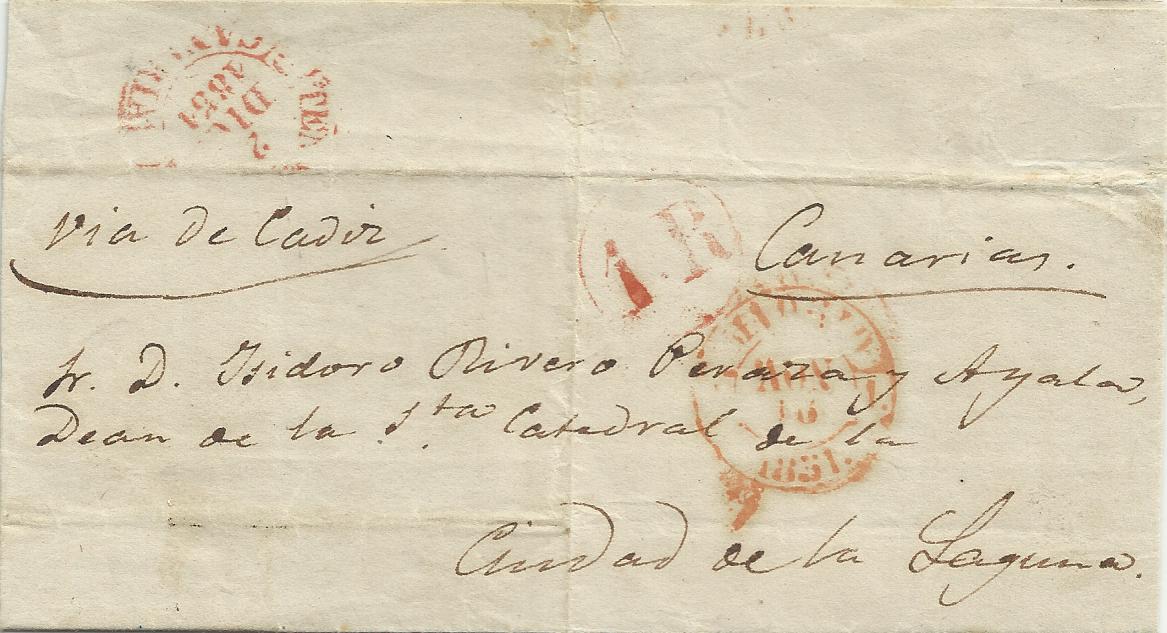 1851
DIC
2
via de Cadiz
1 R
Canarias.
Sr. D. Isidoro Rivero Peraza y Ayala,
Dean de la S.ta Catedral de la
Ciudad de la Laguna.
NOV
16
1851.